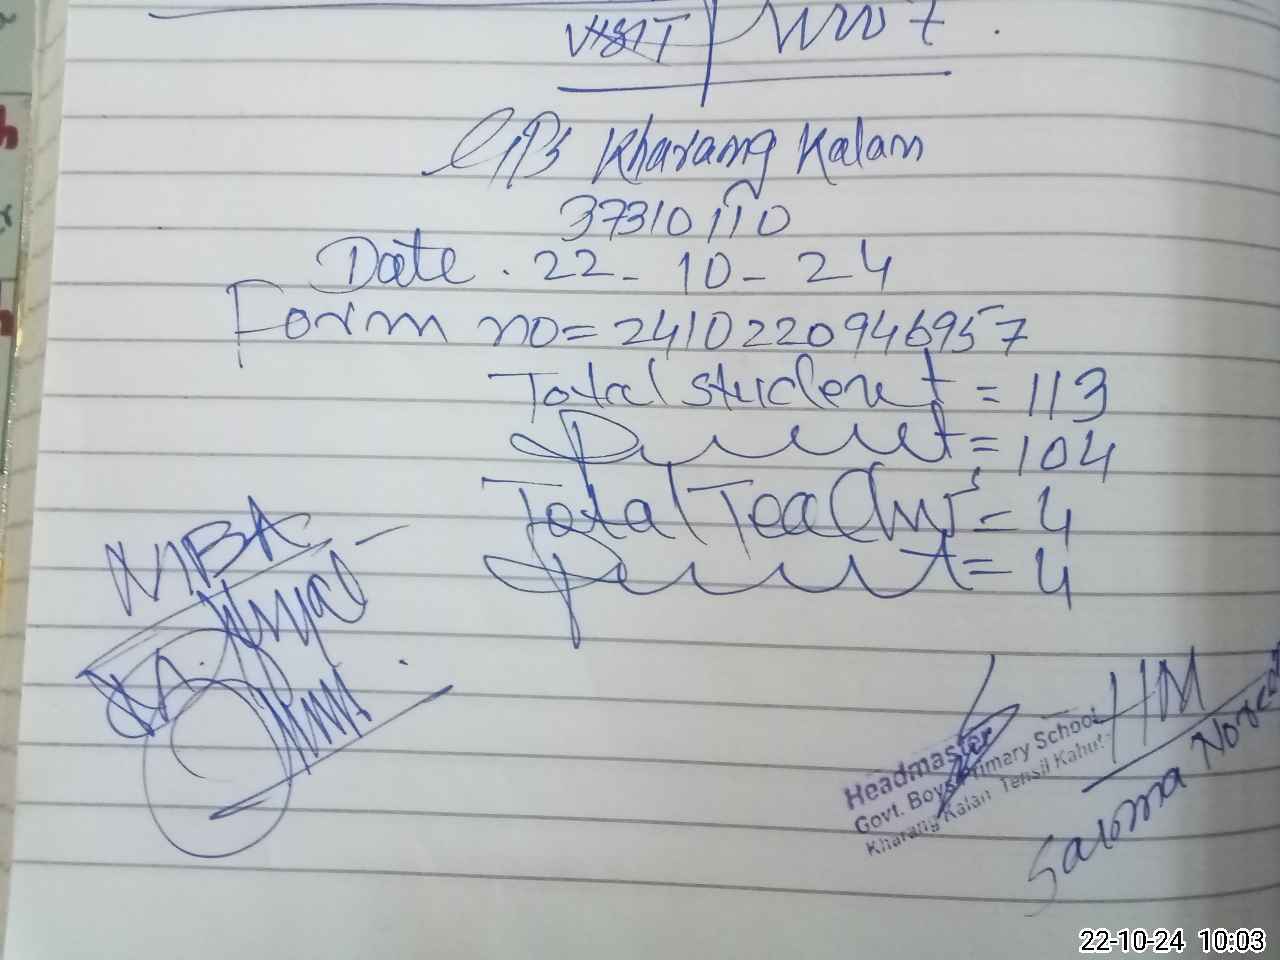 VISIT
GPS Kharang Kalan
37310110
Date . 22 - 10 - 24
Form no = 2410220946957
Total student = 113
Present = 104
Total Teachers = 4
Present = 4
MBA
HM
Headmaster
Govt. Boys Primary School
Kharang Kalan Tehsil Kahuta
Saloma
22-10-24 10:03